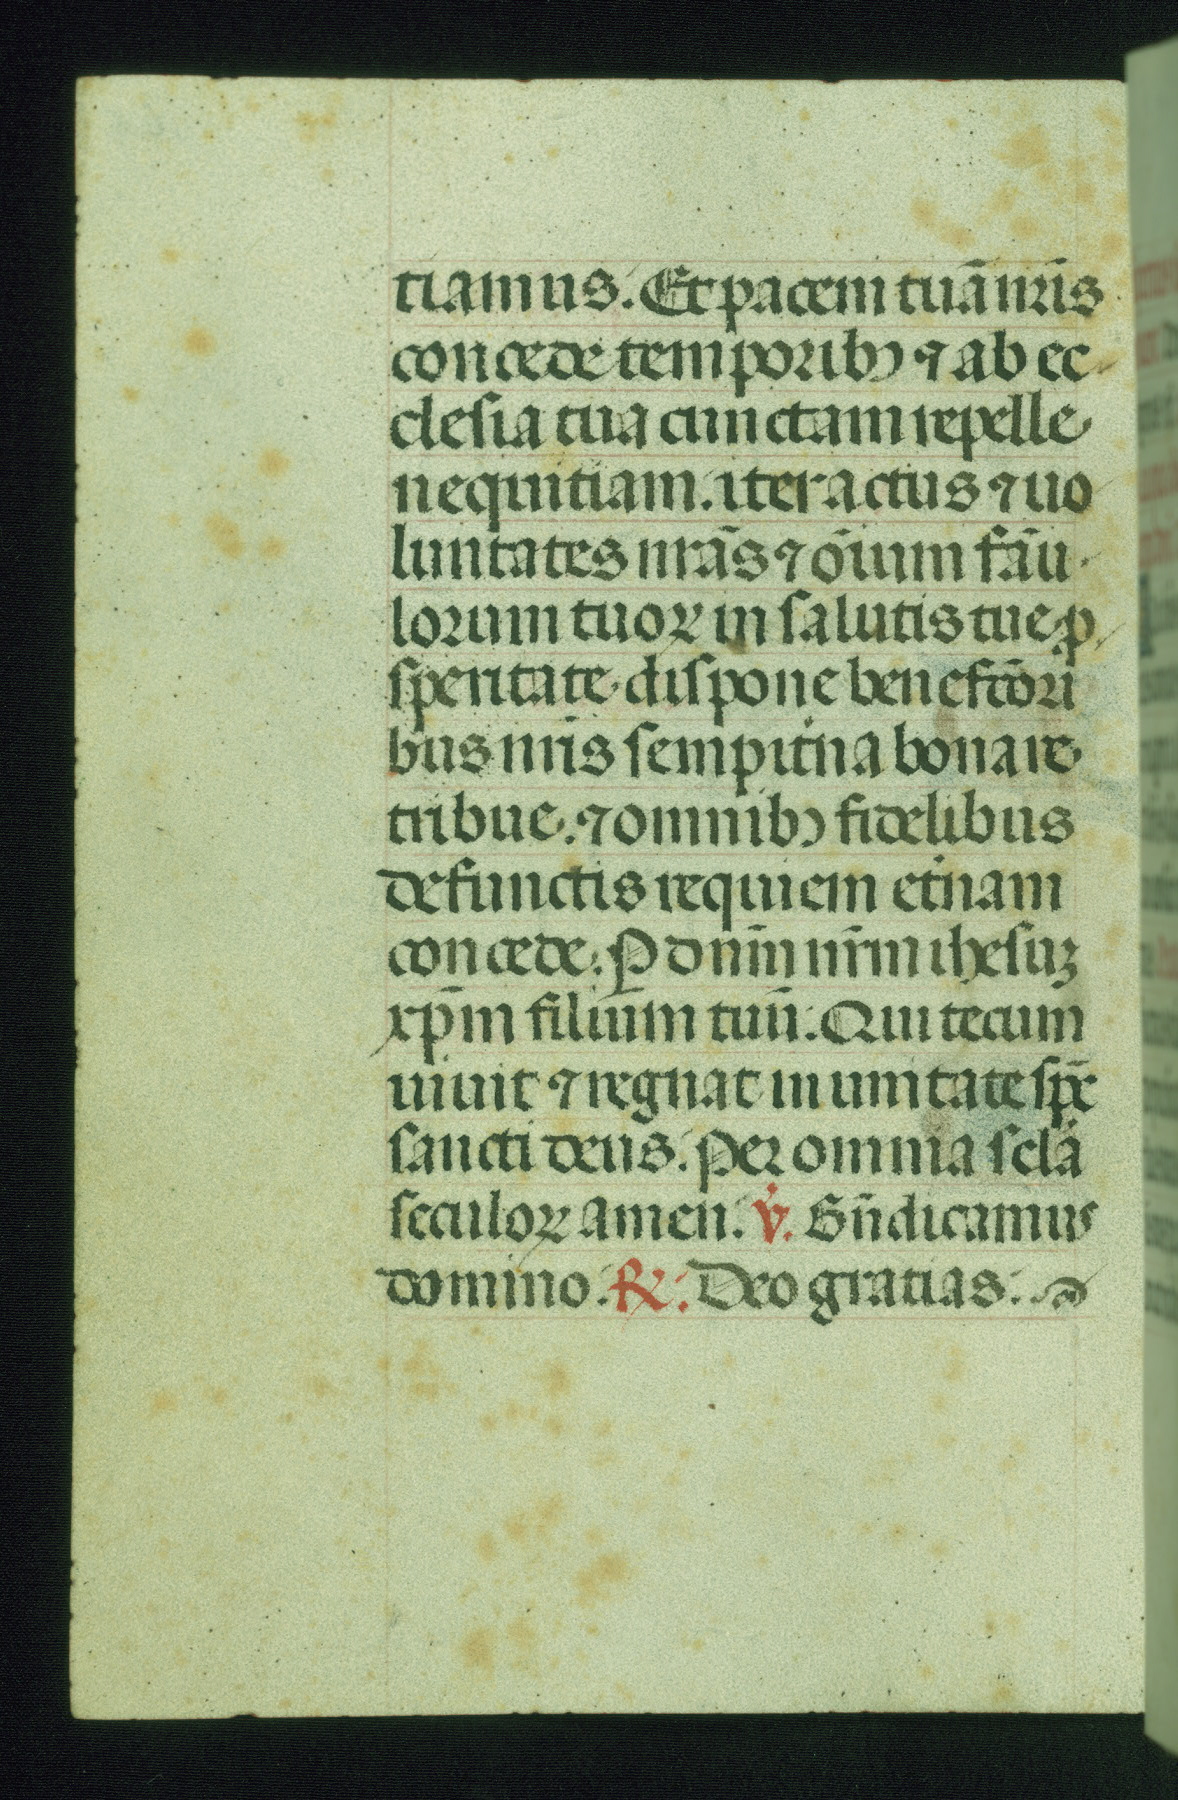 tiamus. Et pacem tuā nr̄is
concede temporibꝫ ⁊ ab ec-
clesia tua cunctam repelle
nequitiam. iter actus ⁊ uo
luntates nrās ⁊ oīum fāu-
lorum tuoꝝ in salutis tue ꝓ
speritate dispone benefc̄ori
bus nr̄is sempit̉na bona re
tribue. ⁊ omnibꝫ fidelibus
defunctis requiem et̉nam
concede. P dn̄m nr̄m ihesuꝫ
xp̄m filium tuū. Qui tecum
uiuit ⁊ regnat in unitate sp̄c
sancti deus. Per omnia sc̄la
seculoꝝ amen. ℣. Bn̄dicamus
domino. ℟. Deo gratias.